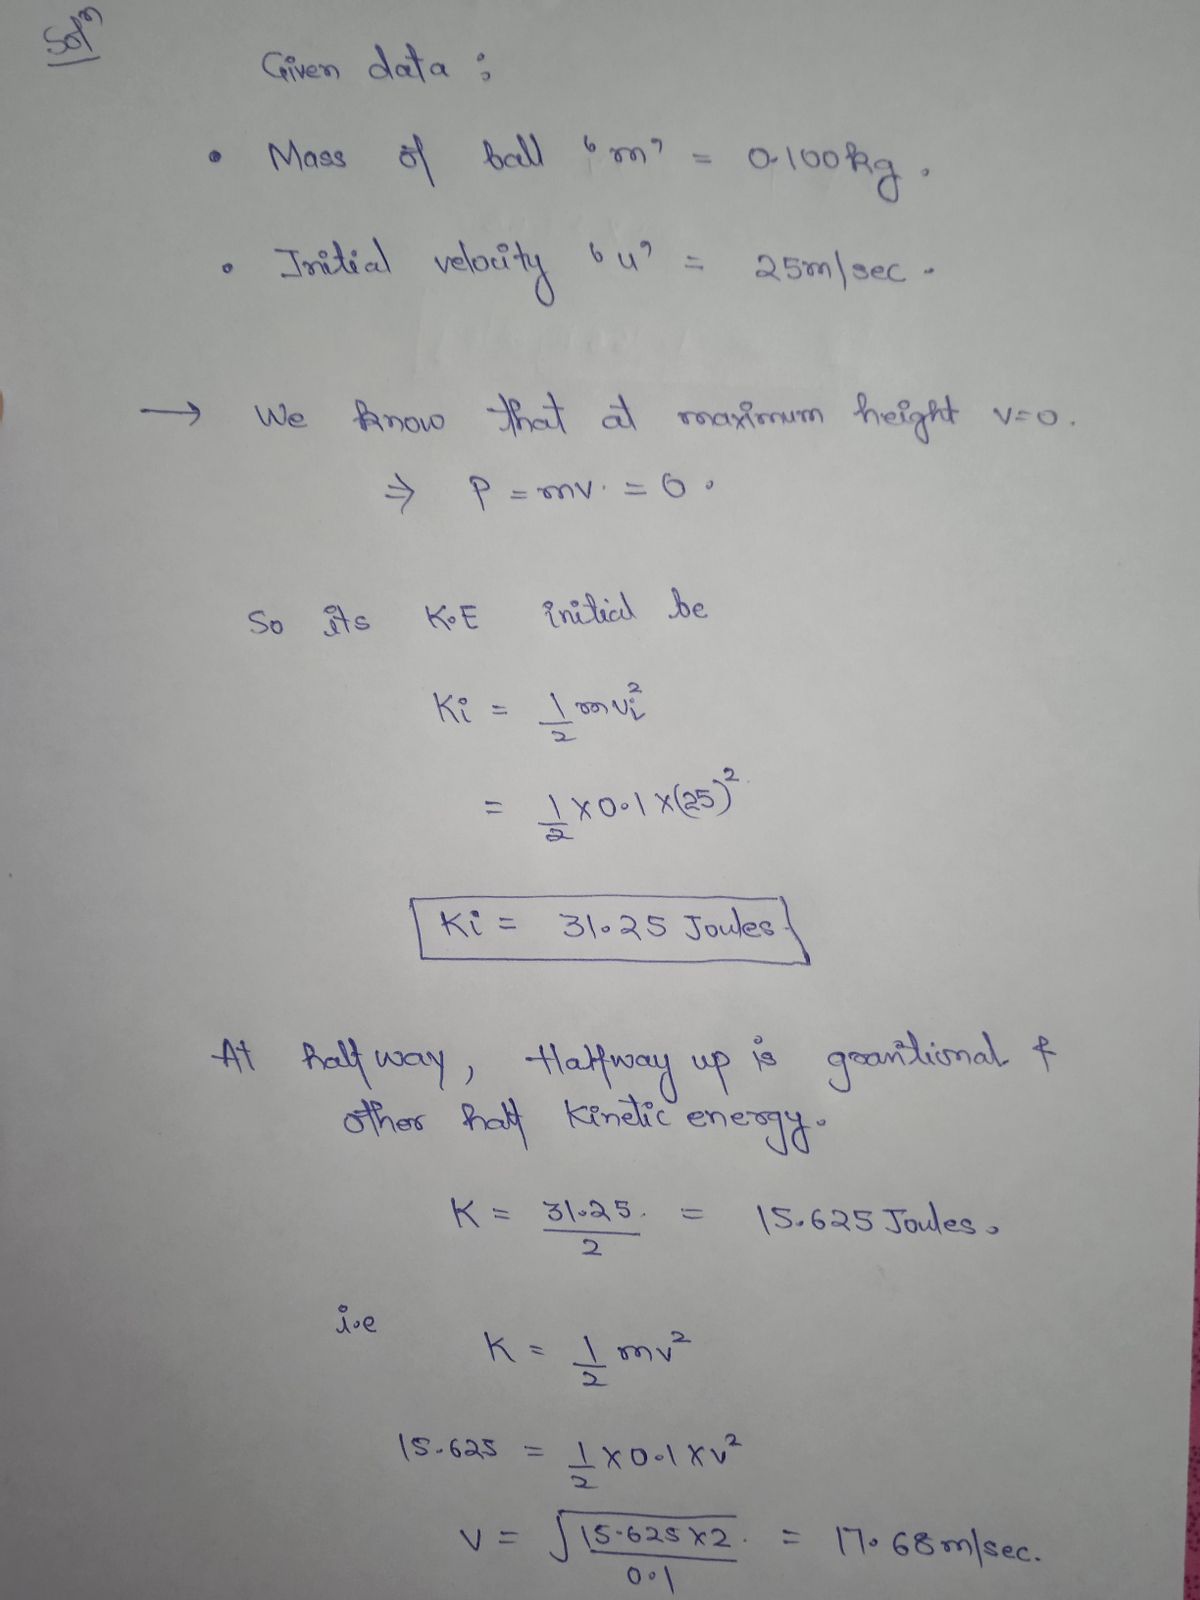 Solⁿ
Given data :
• Mass of ball 'm' = 0.100kg.
• Initial velocity 'u' = 25m/sec.
→ We know that at maximum height v=0.
⇒ P = mv. = 0.
So its K.E initial be
Ki = 1/2 mvi²
= 1/2 × 0.1 × (25)²
Ki = 31.25 Joules
At half way, Halfway up is gravitional &
other half Kinetic energy.
K = 31.25/2 = 15.625 Joules.
i.e
K = 1/2 mv²
15.625 = 1/2 × 0.1 × v²
v = √(15.625×2/0.1) = 17.68m/sec.